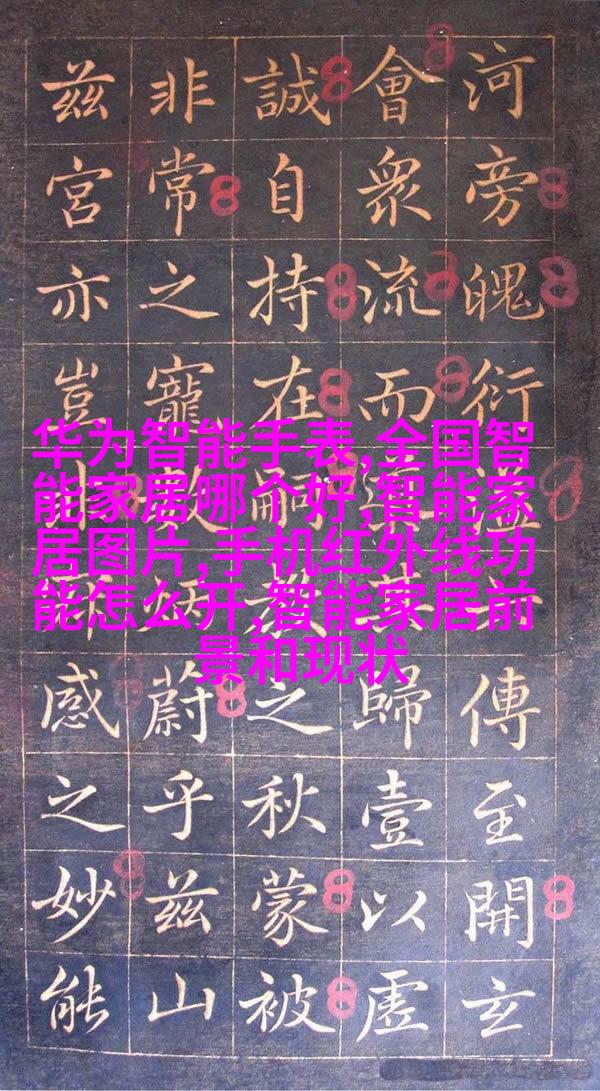 河旁魄衍溢傳至開玄
會衆流而歸壹以虛
誠自持在嗣教之秋蒙被
非常之寵炳蔚乎茲山
茲宮亦豈感之妙能
华为智能手表,全国智
能家居哪个好,智能家
居图片,手机红外线功
能怎么开,智能家居前
景和现状